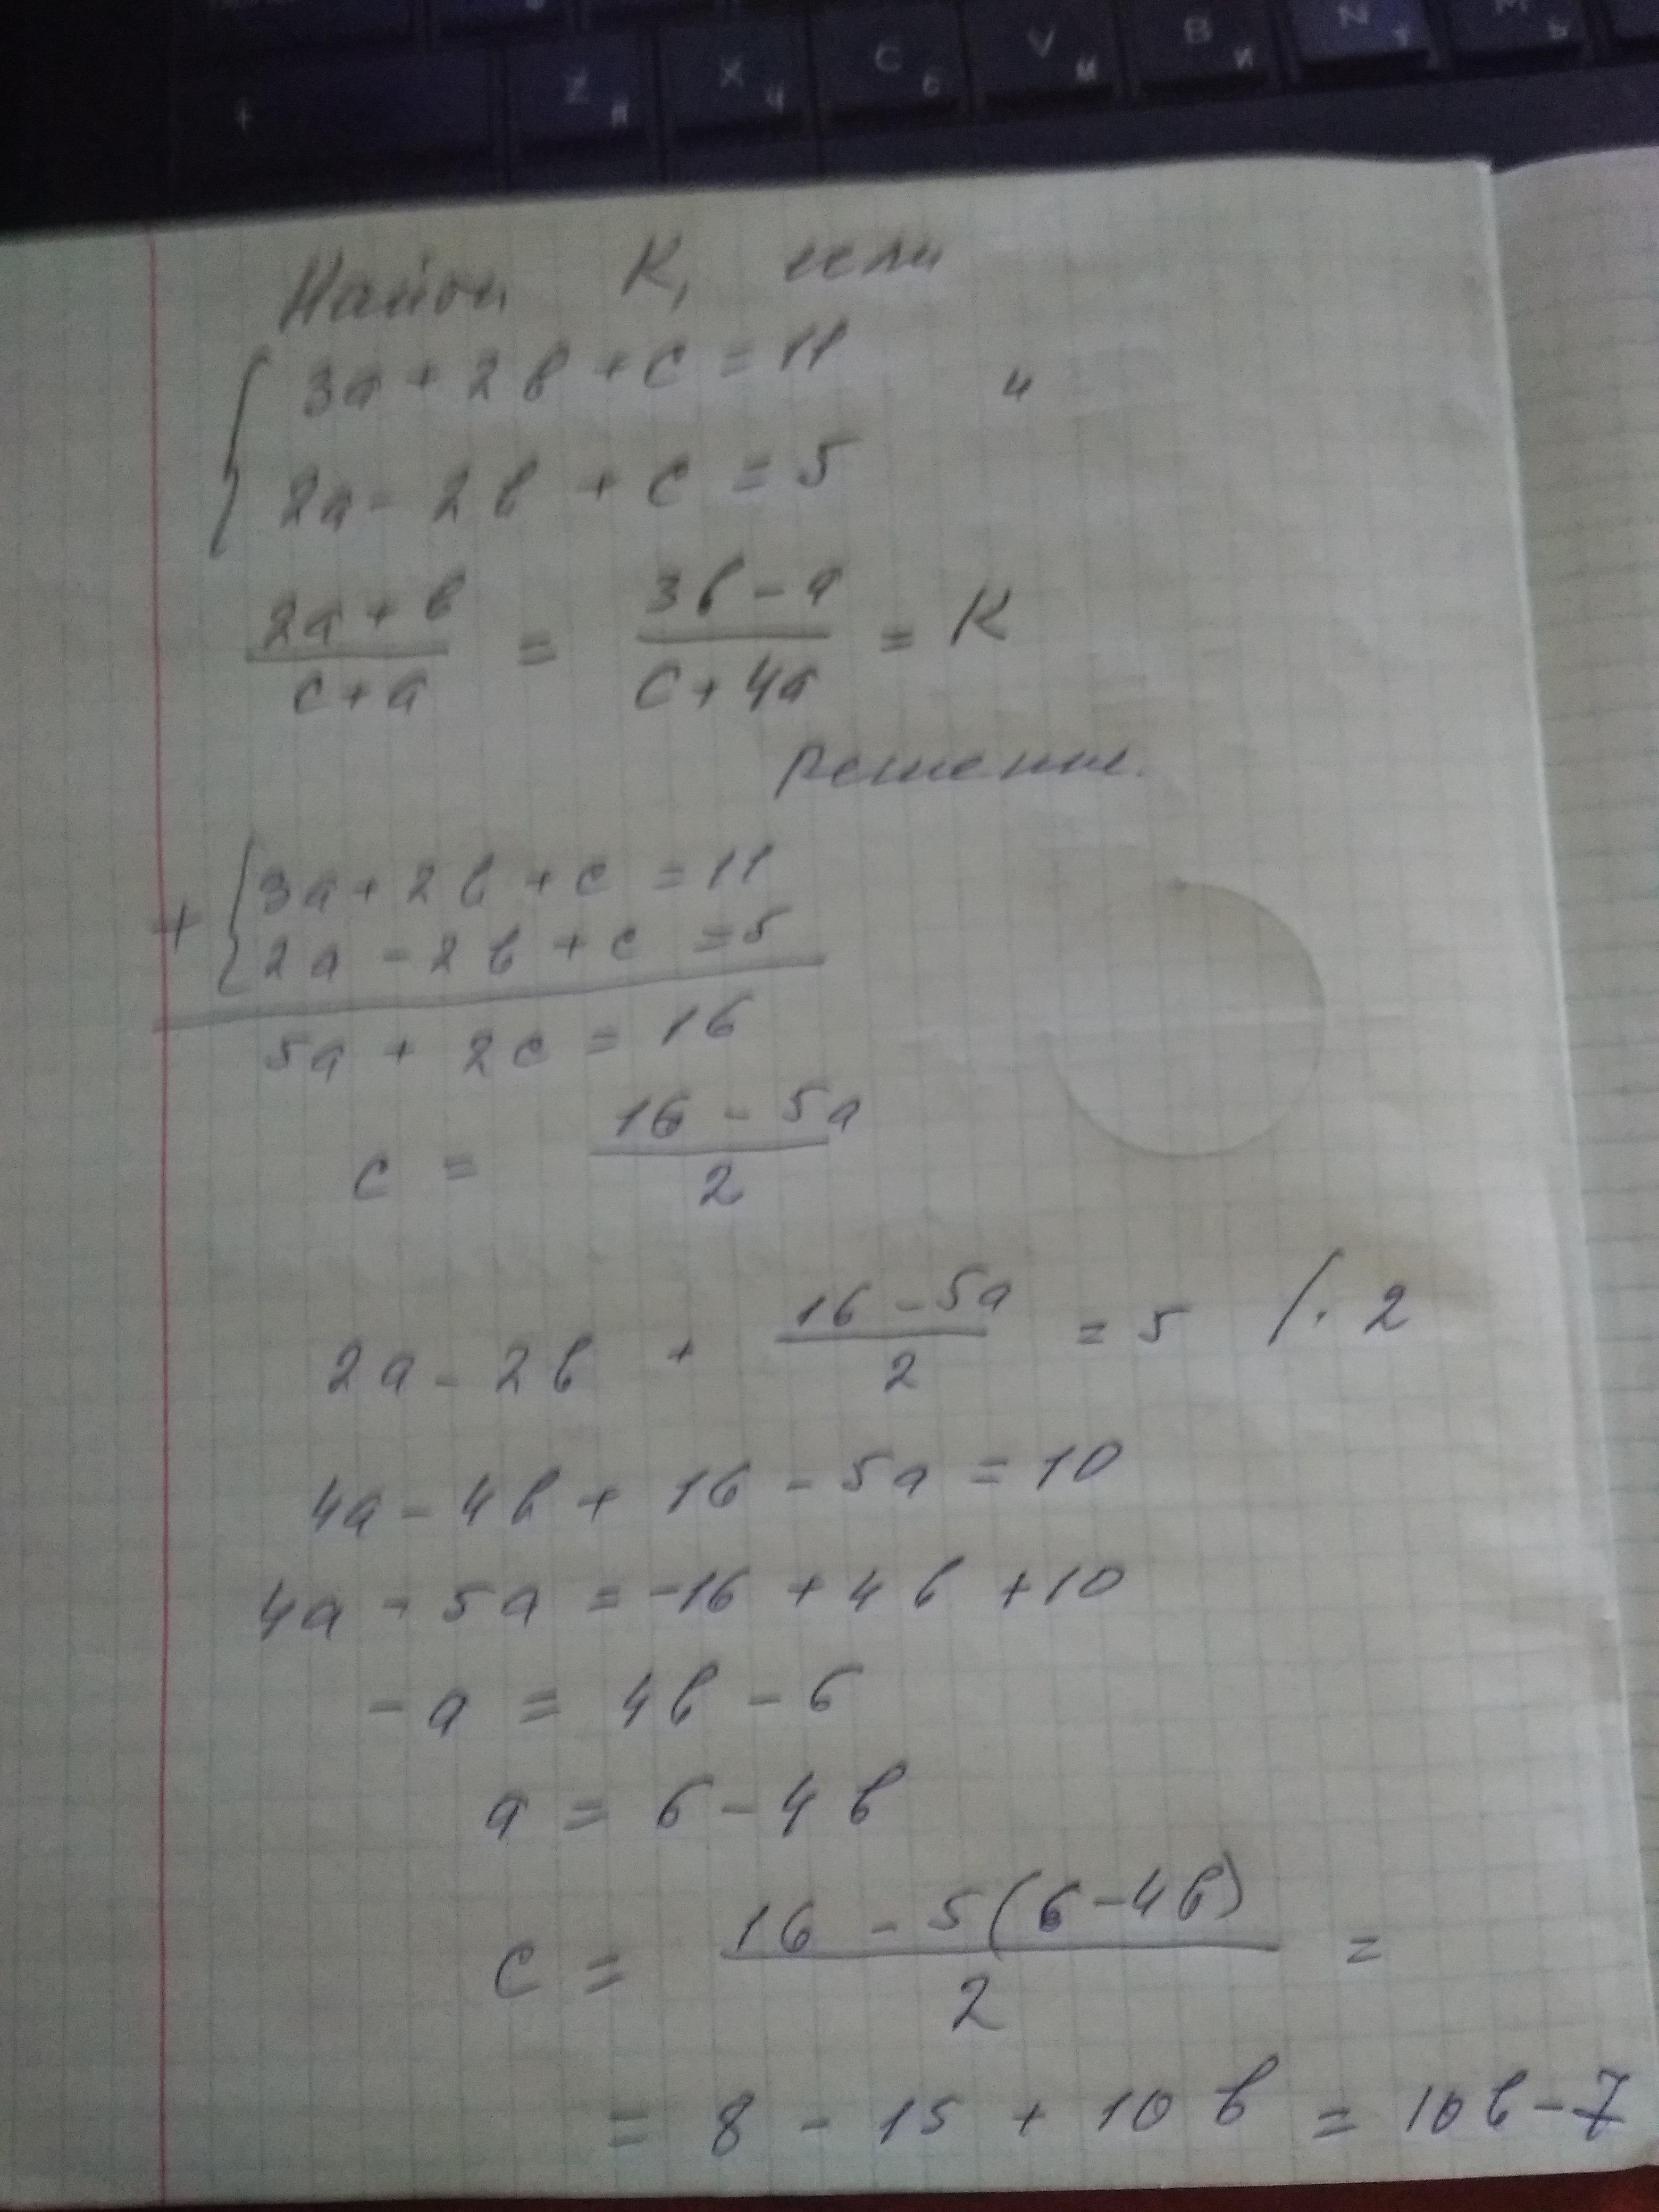 Z Я X Ч C С V М B И N Т M Ь
Найти K, если
3a + 2b + c = 11 и
2a - 2b + c = 5
(2a + b)/(c + a) = (3b - a)/(c + 4a) = K
решение.
+ { 3a + 2b + c = 11
2a - 2b + c = 5
5a + 2c = 16
c = (16 - 5a)/2
2a - 2b + (16 - 5a)/2 = 5 /· 2
4a - 4b + 16 - 5a = 10
4a - 5a = -16 + 4b + 10
-a = 4b - 6
a = 6 - 4b
c = (16 - 5(6 - 4b))/2 =
= 8 - 15 + 10b = 10b - 7